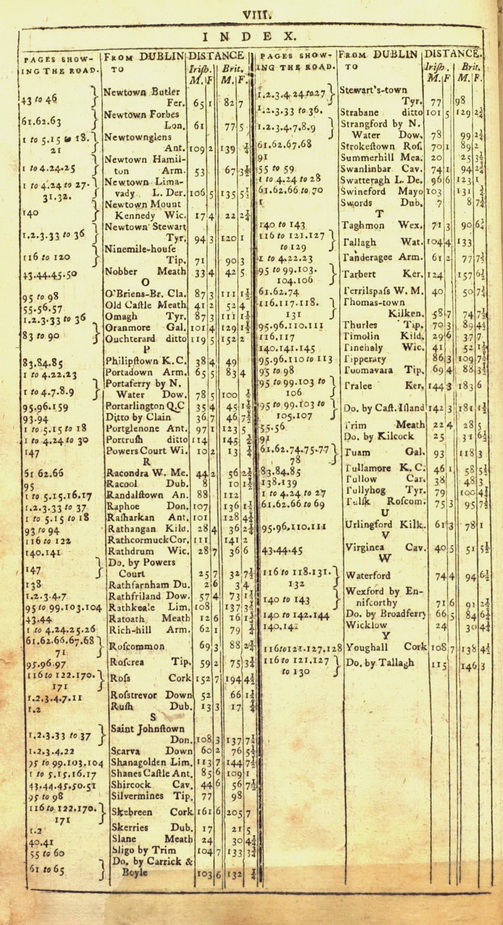 VIII.
INDEX.
PAGES SHOW- FROM DUBLIN DISTANCE
ING THE ROAD. TO Irish. Brit.
M. F M. F
Newtown Butler
43 to 46 Fer. 65 1 82 7
Newtown Forbes
61.62.63 Lon. 61 77 5
1 to 5.15 to 18. Newtownglens
21 Ant. 109 2 139
Newtown Hamil-
1 to 4.24.25 ton Arm. 53 67 3½
1 to 4.24 to 27. Newtown Lima-
31.32. vady L. Der. 106 5 135 5½
Newtown Mount
140 Kennedy Wic. 17 4 22 2¼
Newtown Stewart
1.2.3.33 to 36 Tyr. 94 3 120 1
Ninemile-house
116 to 120 Tip. 71 90 3
43.44.45.50 Nobber Meath 33 4 42 5
O
95 to 98 O'Briens-Br. Cla. 87 3 111 1½
55.56.57 Old Castle Meath 41 2 52 4
1.2.3.33 to 36 Omagh Tyr. 87 3 111 1½
83 to 90 Oranmore Gal. 101 4 129 1½
Ouchterard ditto 119 5 152 2
P
83.84.85 Philipstown K. C. 38 4 49
1 to 4.22.23 Portadown Arm. 65 5 83 4
Portaferry by N.
1 to 4.7.8.9 Water Dow. 78 5 100
95.96.159 Portarlington Q.C 35 4 45 1½
93.94 Ditto by Clain 36.7 46 7½
1 to 5.15 to 18 Portglenone Ant. 97 1 123 5
1 to 4.24 to 30 Portrush ditto 114 145
147 Powers Court Wi. 10 2 13
R
61 62.66 Racondra W. Me. 44 2 56 2½
95 Racool Dub. 8 10 1½
1 to 5.15.16.17 Randalstown An. 88 112
1.2.3.33 to 37 Raphoe Don. 107 136 1½
1 to 5.15 to 18 Rasharkan Ant. 101 128 4½
93 to 94 Rathangan Kild. 28 4 36 2¼
116 to 122 RathcormuckCor. 111 141 2
140.141 Rathdrum Wic. 28 7 36 6
Do. by Powers
147 Court 25 7 32 7½
138 Rathfarnham Du. 2 6 3 4
1.2.3.4.7 Rathfriland Dow. 57 4 73 1½
95 to 99.103.104 Rathkeale Lim. 108 137 3½
43.44 Ratoath Meath 12 6 16 1½
1 to 4.24.25.26 Rich-hill Arm. 62 1 79
61.62.66.67.68
71 Roscommon 69 3 88 2½
95.96.97 Roscrea Tip. 59 2 75 3¼
116 to 122.170. Ross Cork 152 7 194 4½
171
1.2.3.4.7.11 Rostrevor Down 52 66 1½
1.2 Rush Dub. 13 3 17
S
Saint Johnstown
1.2.3.33 to 37 Don. 108 3 137 7½
1.2.3.4.22 Scarva Down 60 2 76 5½
95 to 99.103,104 Shanagolden Lim. 113 7 144 7½
1 to 5.15.16.17 Shanes Castle Ant. 85 6 109 1
43.44.45.50.51 Shircock Cav. 44 6 56 7½
95 to 98 Silvermines Tip. 77 98
116 to 122.170. Skebreen Cork 161 6 205 7
171
1.2 Skerries Dub. 17 21 5
40.41 Slane Meath 24 30 4½
55 to 60 Sligo by Trim 104 7 133 3¼
Do. by Carrick &
61 to 65 Boyle 103 6 132
PAGES SHOW- FROM DUBLIN DISTANCE.
ING THE ROAD. TO Irish. Brit.
M. F M. F
1.2.3.4.24 to 27 Stewart's-town
Tyr. 77 98
1.2.3.33 to 36. Strabane ditto 101 5 129 2¾
Strangford by N.
1.2.3.4.7.8.9 Water Dow. 78 99 2¼
61.62.67.68 Strokestown Ros. 70 1 89 2
91 Summerhill Mea. 20 25 3½
55 to 59 Swanlinbar Cav. 74 1 94 2½
1 to 4.24 to 28 Swatteragh L. De. 96 6 123 1
61.62.66 to 70 Swineford Mayo 103 131
1 Swords Dub. 7 8 7¼
T
140 to 143 Taghmon Wex. 71 3 90 6¾
116 to 121.127 Tallagh Wat. 104 4 133
to 129
1 to 4.22.23 Tanderagee Arm. 61 2 77 7½
95 to 99.103.
104.106 Tarbert Ker. 124 157 6½
61.62.74 Terrilspass W. M. 40 50 7¼
116.117.118. Thomas-town
131 Kilken. 58 7 74 7½
95.96.110.111 Thurles Tip. 70 3 89 4½
116.117 Timolin Kild. 29 6 37 7
140.141.145 Tinehely Wic. 41 52 1½
95.96.110 to 113 Tipperary 86 3 109 7½
93 to 98 Toomavara Tip. 69 4 88 3½
95 to 99.103 to
106 Tralee Ker, 144 3 183 6
95 to 99.103 to
105.107 Do. by Cast. Island 142 3 181 1½
55.56 Trim Meath 22 4 28 5
91 Do. by Kilcock 25 31 6½
61.62.74.75.77
78 Tuam Gal. 93 118 3
83.84.85 Tullamore K. C. 46 1 58 5½
138.139 Tullow Car. 38 48 3
1 to 4.24 to 27 Tullyhog Tyr. 79 100 4½
61.62.66 to 69 Tulsk Roscom. 75 3 95 7½
U
95.96.110.111 Urlingford Kilk. 61 3 78 1
V
43.44.45 Virginea Cav. 40 5 51 5½
W
116 to 118.131.
132 Waterford 74 4 94 6½
Wexford by En-
140 to 143 niscorthy 71 6 91 2½
140 to 142.144 Do. by Broadferry 66 5 84 6½
140.14 Wicklow 24 30 4¼
Y
116 to 123.127,128 Youghall Cork 108 7 138 4½
116 to 121.127
to 130 Do. by Tallagh 115 146 3